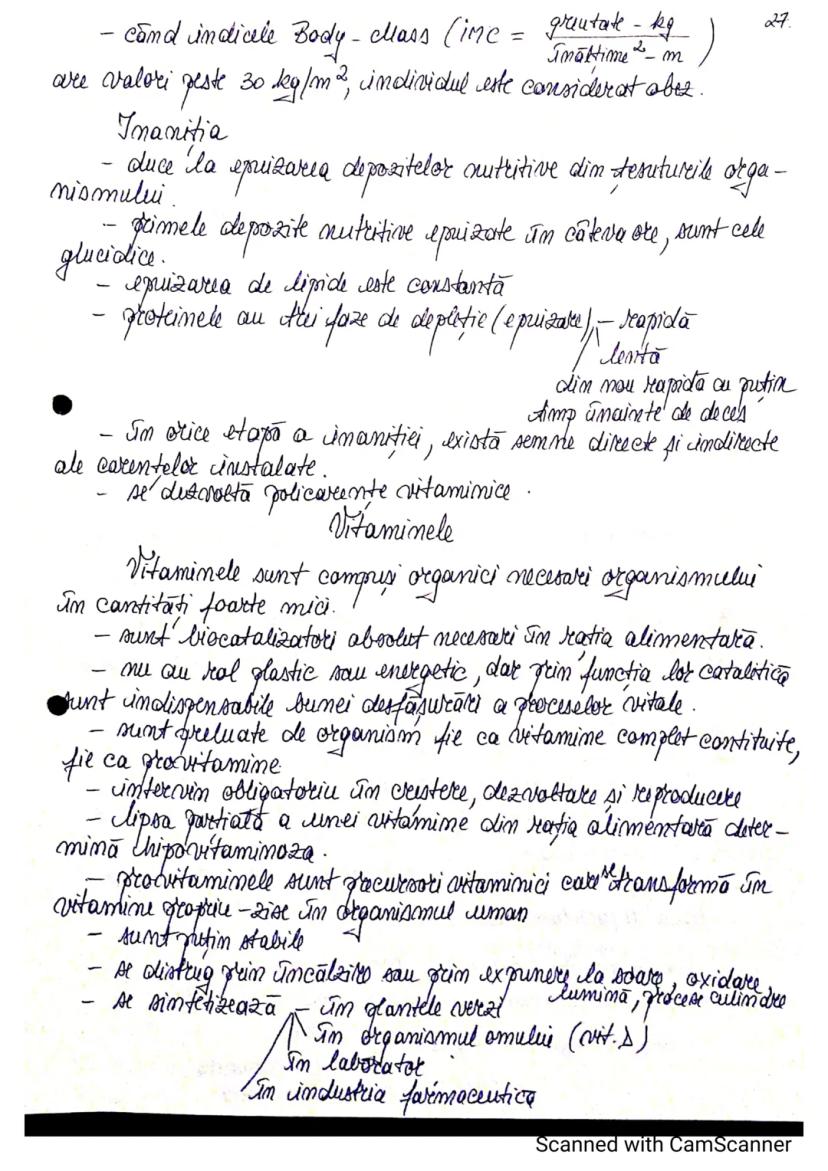 27.
- când indicele Body-Mass (IMC = greutate - kg / înălțime² - m)
are valori peste 30 kg/m², individul este considerat obez.
Inaniția
- duce la epuizarea depozitelor nutritive din țesuturile orga-
nismului.
- primele depozite nutritive epuizate în câteva ore, sunt cele
glucidice.
- epuizarea de lipide este constantă
- proteinele au trei faze de depleție (epuizare) - rapidă
lentă
din nou rapidă cu puțin
timp înainte de deces
- în orice etapă a inaniției, există semne directe și indirecte
ale carențelor instalate.
- se dezvoltă policarențe vitaminice.
Vitaminele
Vitaminele sunt compuși organici necesari organismului
în cantități foarte mici.
- sunt biocatalizatori absolut necesari în rația alimentară.
- nu au rol plastic sau energetic, dar prin funcția lor catalitică
sunt indispensabile bunei desfășurări a proceselor vitale.
- sunt preluate de organism fie ca vitamine complet contituite,
fie ca provitamine
- intervin obligatoriu în creștere, dezvoltare și reproducere
- lipsa parțială a unei vitamine din rația alimentară deter-
mină hipovitaminoza.
- provitaminele sunt precursori vitaminici care se transformă în
vitamine propriu-zise în organismul uman
- sunt puțin stabile
- se distrug prin încălzire sau prin expunere la soare, oxidare,
lumină, procese culinare
- se sintetizează - în plantele verzi
în organismul omului (vit. D)
în laborator
în industria farmaceutică
Scanned with CamScanner